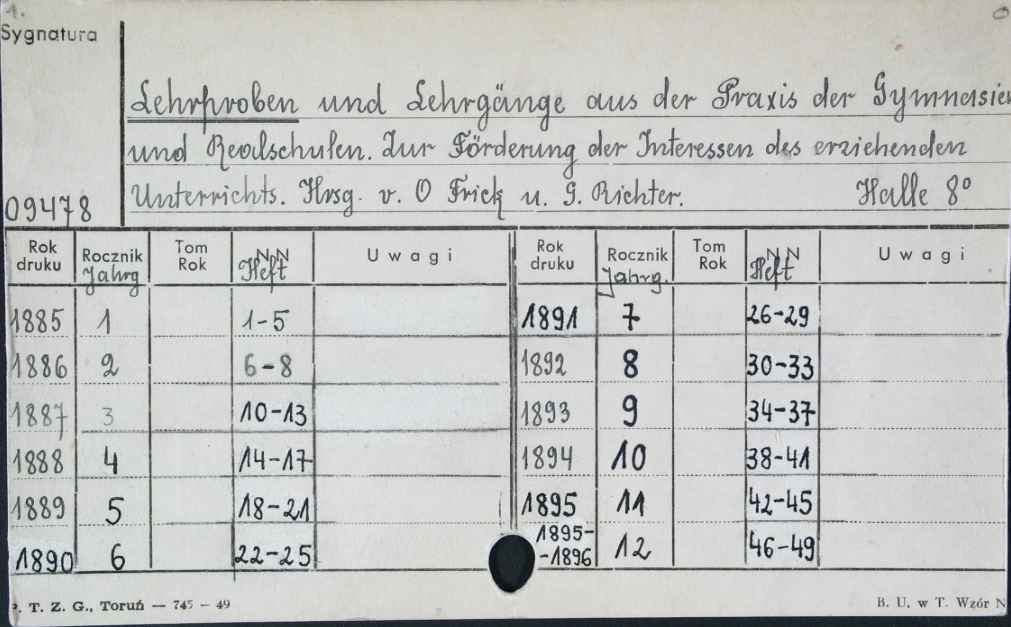 1.
Sygnatura
Lehrproben und Lehrgänge aus der Praxis der Gymnasien
und Realschulen. Zur Förderung der Interessen des erziehenden
Unterrichts. Hrsg. v. O Frick u. G. Richter. Halle 8°
09478
Rok druku Rocznik Jahrg Tom Rok NN Heft Uwagi Rok druku Rocznik Jahrg. Tom Rok NN Heft Uwagi
1885 1 1-5 1891 7 26-29
1886 2 6-8 1892 8 30-33
1887 3 10-13 1893 9 34-37
1888 4 14-17 1894 10 38-41
1889 5 18-21 1895 11 42-45
1890 6 22-25 1895--1896 12 46-49
P. T. Z. G., Toruń — 745 – 49 B. U. w T. Wzór N